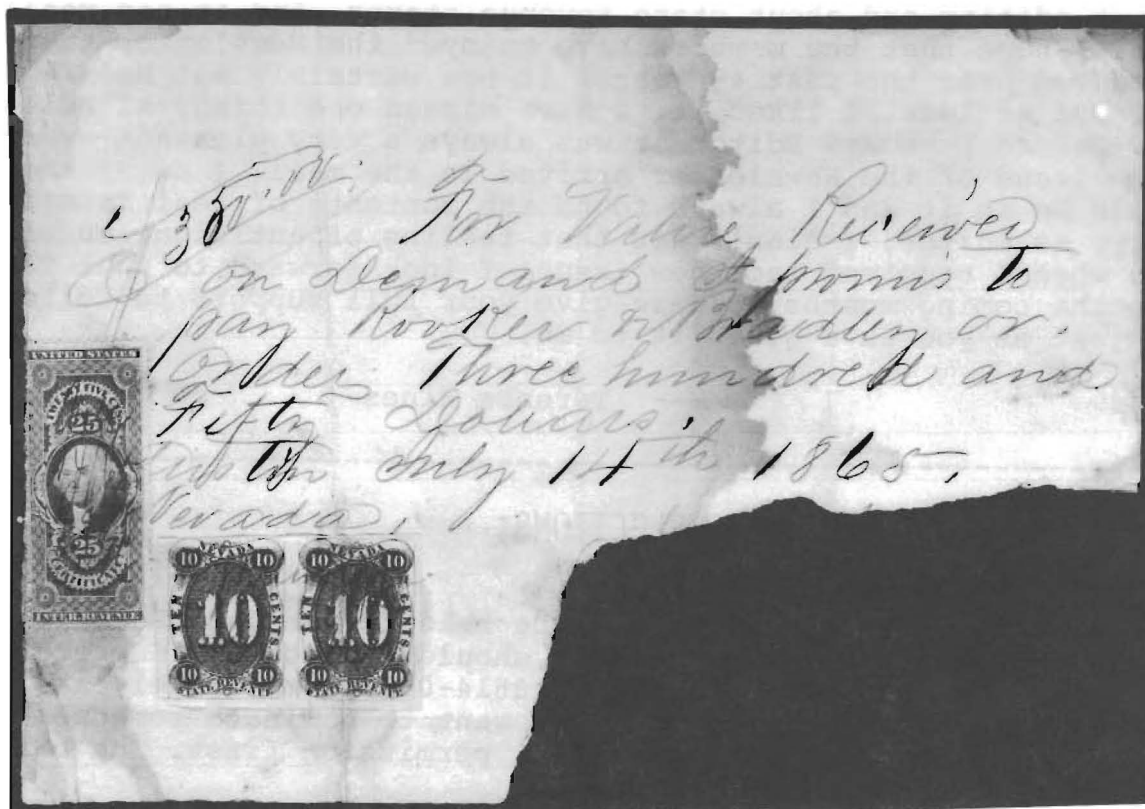 $ 350.00. For Value Received
on Demand I promis to
pay Rooker & Bradley or.
order Three hundred and
Fifty Dollars.
Austin July 14th 1865.
Nevada.
UNITED STATES
TWENTY FIVE CENTS
25
25
CERTIFICATE
INTER. REVENUE
10 NEVADA 10
TEN 10 CENTS
10 STATE REVENUE 10
10 NEVADA 10
TEN 10 CENTS
10 STATE REVENUE 10